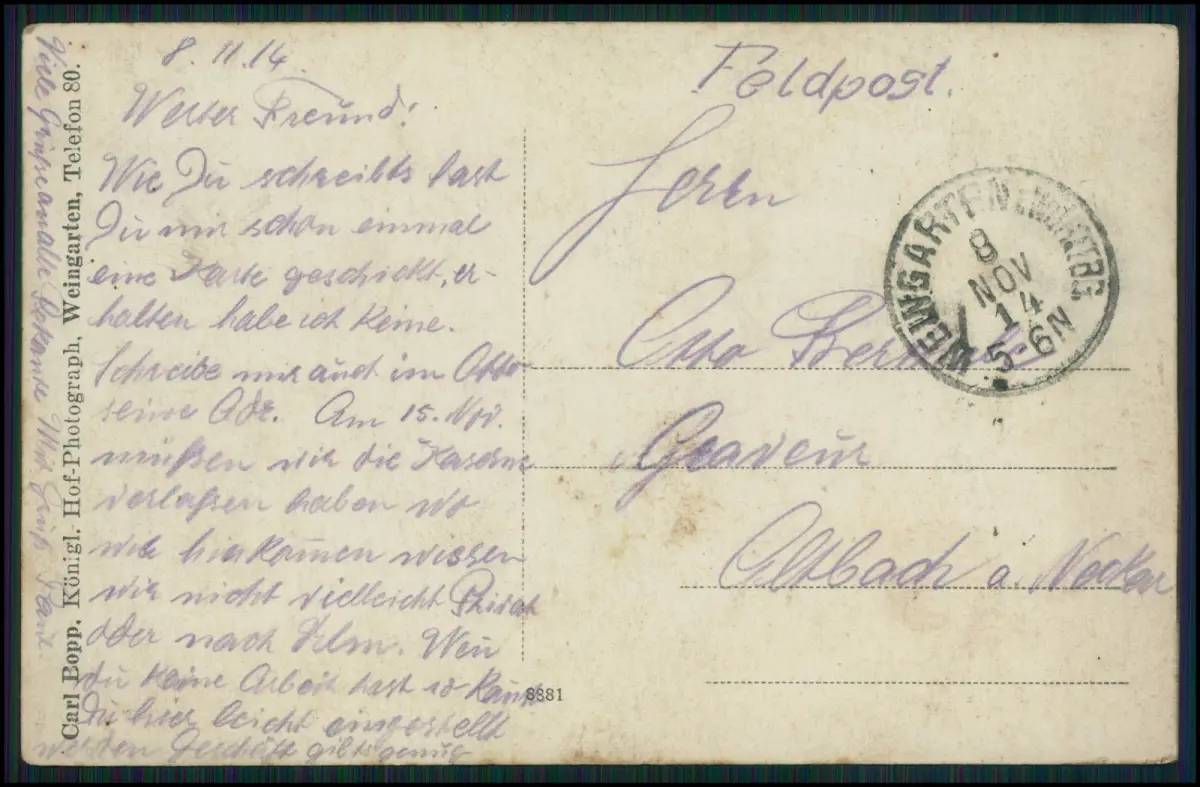 8.11.14.
Werter Freund!
Wie Du schreibts hast
Du mir schon einmal
eine Karte geschickt, er-
halten habe ich Keine.
Schreibe mir auch im Otto
seine Adr. Am 15. Nov.
müßen wir die Kaserne
verlaßen haben wo
wir hinkommen wissen
wir nicht vielleicht Privat
oder nach Ulm. Wen
du Keine Arbeit hast so Kannst
Du hier leicht eingestellt
werden Geschäft gibts genug
Viele Grüsse an alle Bekante Mit Gruß
Carl Bopp, Königl. Hof-Photograph, Weingarten, Telefon 80.
8881
Feldpost.
Herrn
Otto
Graveur
Altbach a. Neckar
WEINGARTEN (WÜRTTBG
8
NOV
14
5-6N